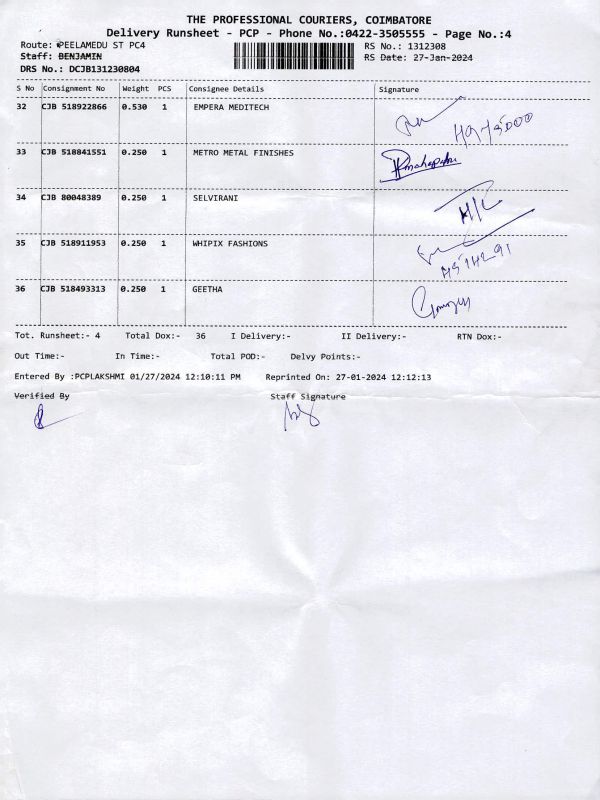 THE PROFESSIONAL COURIERS, COIMBATORE
Delivery Runsheet - PCP - Phone No.:0422-3505555 - Page No.:4
Route: PEELAMEDU ST PC4 RS No.: 1312308
Staff: BENJAMIN RS Date: 27-Jan-2024
DRS No.: DCJB131230804
S No Consignment No Weight PCS Consignee Details Signature
32 CJB 518922866 0.530 1 EMPERA MEDITECH
33 CJB 518841551 0.250 1 METRO METAL FINISHES
34 CJB 80048389 0.250 1 SELVIRANI
35 CJB 518911953 0.250 1 WHIPIX FASHIONS
36 CJB 518493313 0.250 1 GEETHA
Tot. Runsheet:- 4 Total Dox:- 36 I Delivery:- II Delivery:- RTN Dox:-
Out Time:- In Time:- Total POD:- Delvy Points:-
Entered By :PCPLAKSHMI 01/27/2024 12:10:11 PM Reprinted On: 27-01-2024 12:12:13
Verified By Staff Signature